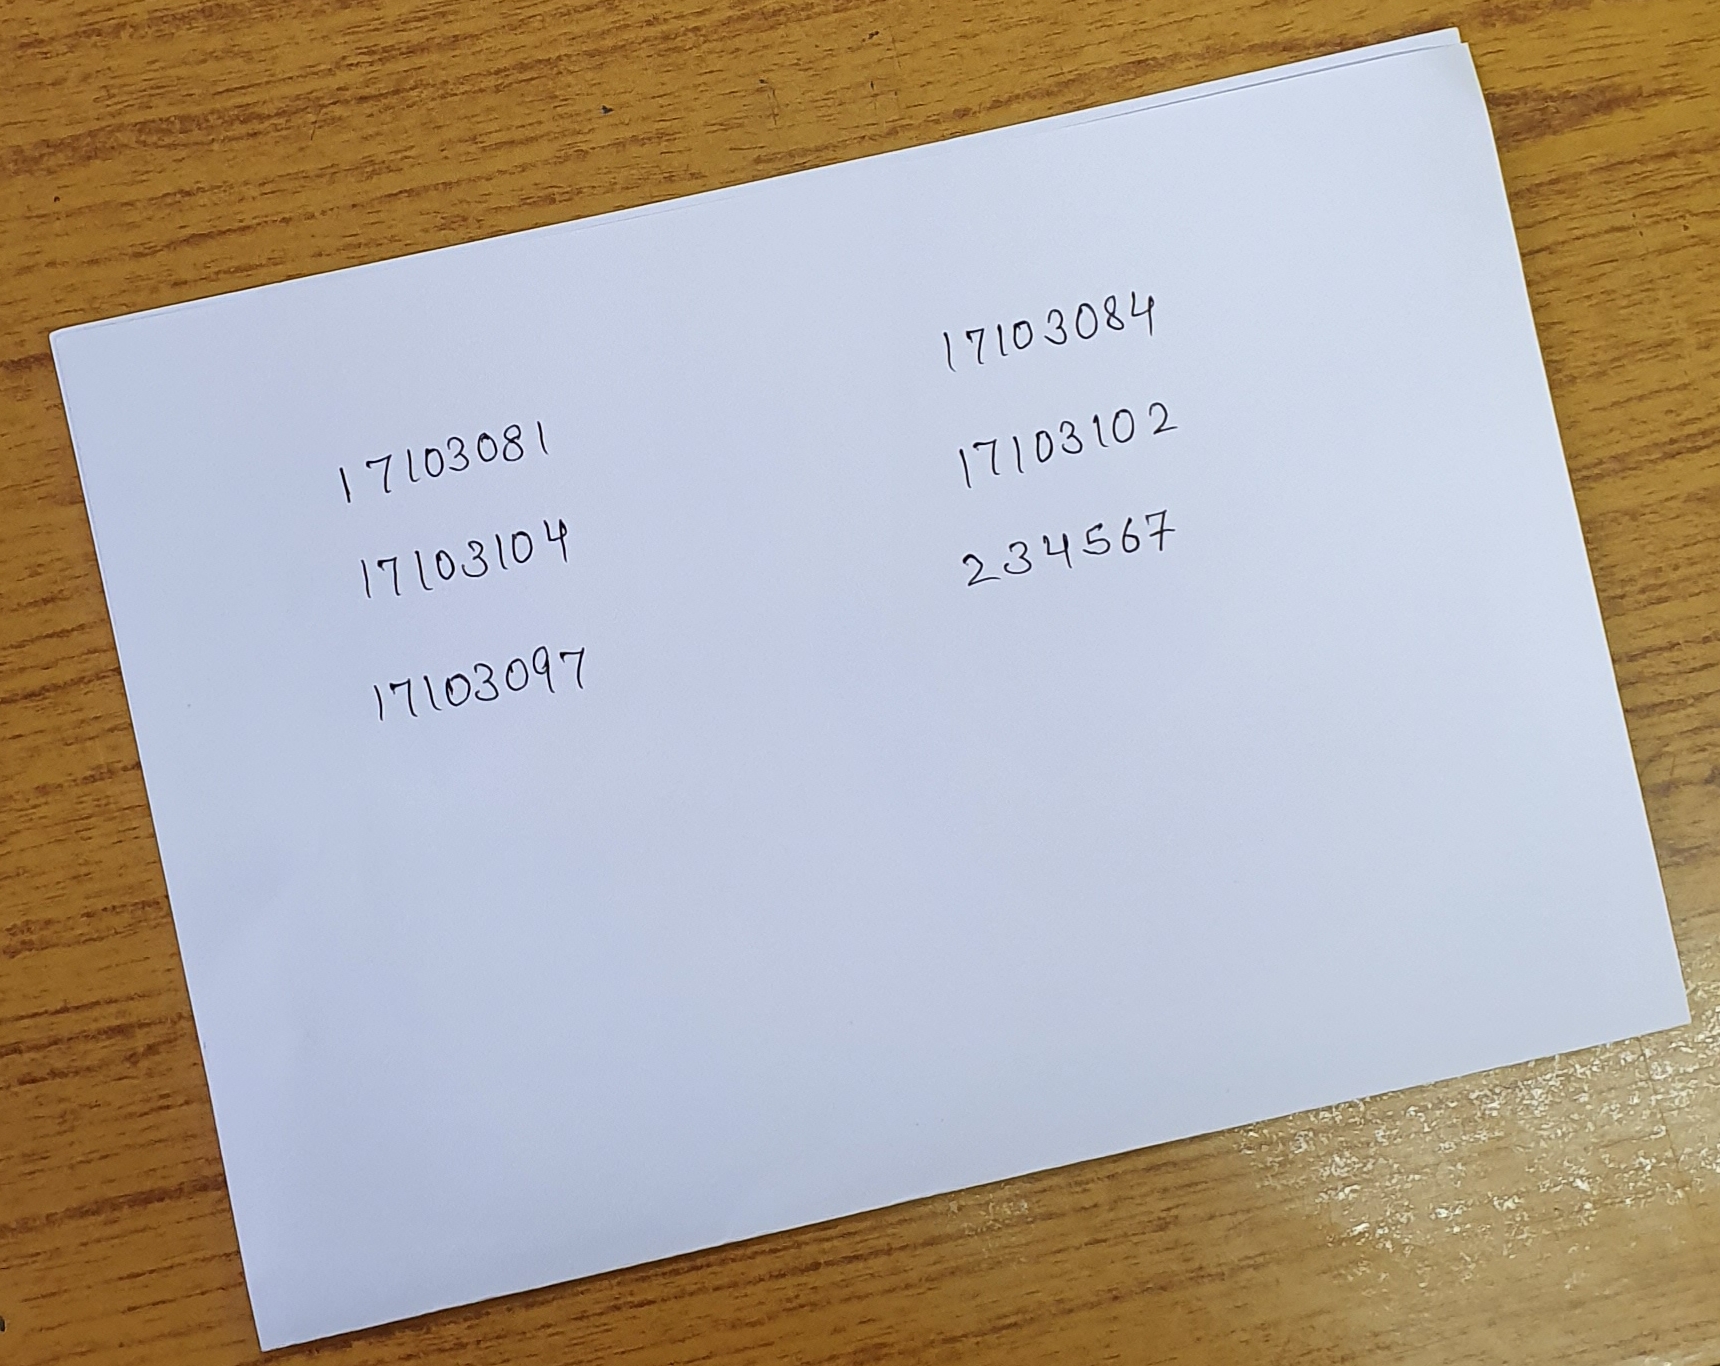 17103081
17103104
17103097
17103084
17103102
234567